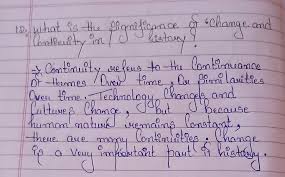 10. What is the significance of "Change and
Continuity in history?
→ Continuity refers to the Continuance
of themes Over time, Or Similarities
Over time. Technology Changes and
Cultures Change, but because
human nature remains Constant,
there are many Continuities. Change
is a very important part of history.